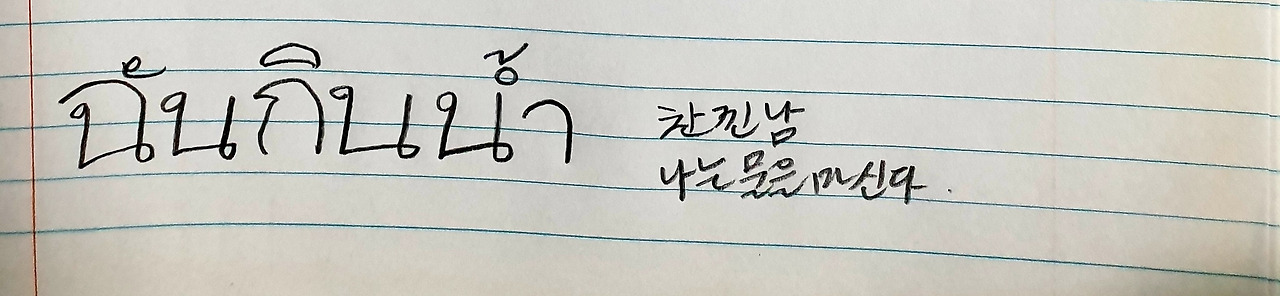 ฉันกินน้ำ
찬낀남
나는물을마신다.